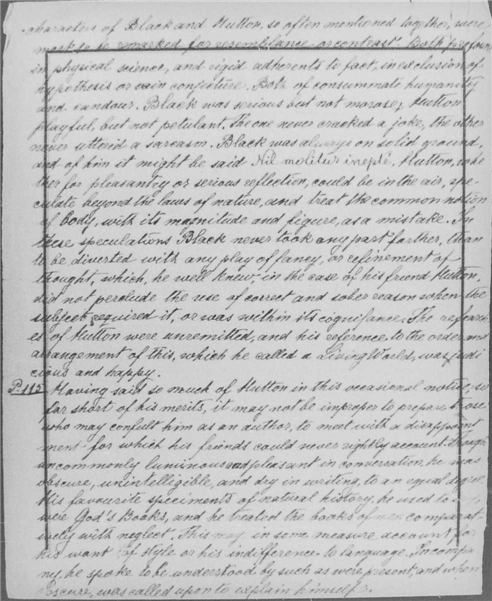 characters of Black and Hutton, so often mentioned together, were
more to be remarked for resemblance or contrast. Both profound
in physical science, and rigid adherents to fact, in exclusion of
hypothesis or vain conjecture. Both of consummate humanity
and candour. Black was serious but not morose; Hutton
playful, but not petulant. The one never cracked a joke, the other
never uttered a sarcasm. Black was always on solid ground,
and of him it might be said Nil molitur inepte. Hutton, whe
ther for pleasantry or serious reflection, could be in the air, spe-
culate beyond the laws of nature, and treat the common notion
of body, with its magnitude and figure, as a mistake. In
these speculations Black never took any part farther, than
to be diverted with any play of fancy, or refinement of
thought, which, he well knew, in the case of his friend Hutton,
did not preclude the use of correct and sober reason when the
subject required it, or was within its cognisance. The
of Hutton were unremitted, and his reference to the order and
arrangement of this, which he called a living World, was judi
cious and happy.
P. 115 Having said so much of Hutton in this occasional notice, so
far short of his merits, it may not be improper to prepare those
who may consult him as an author, to meet with a disappoint
ment for which his friends could never rightly account though
uncommonly luminous and pleasant in conversation he was
obscure, unintelligible, and dry in writing, to an equal degree.
His favourite specimens of natural history, he used to
were God's Books, and he treated the books of men comparat-
ively with neglect. This may in some measure account for
his want of style or his indifference to language. In compa
ny, he spoke to be understood by such as were present, and when
obscure, was called upon to explain himself.